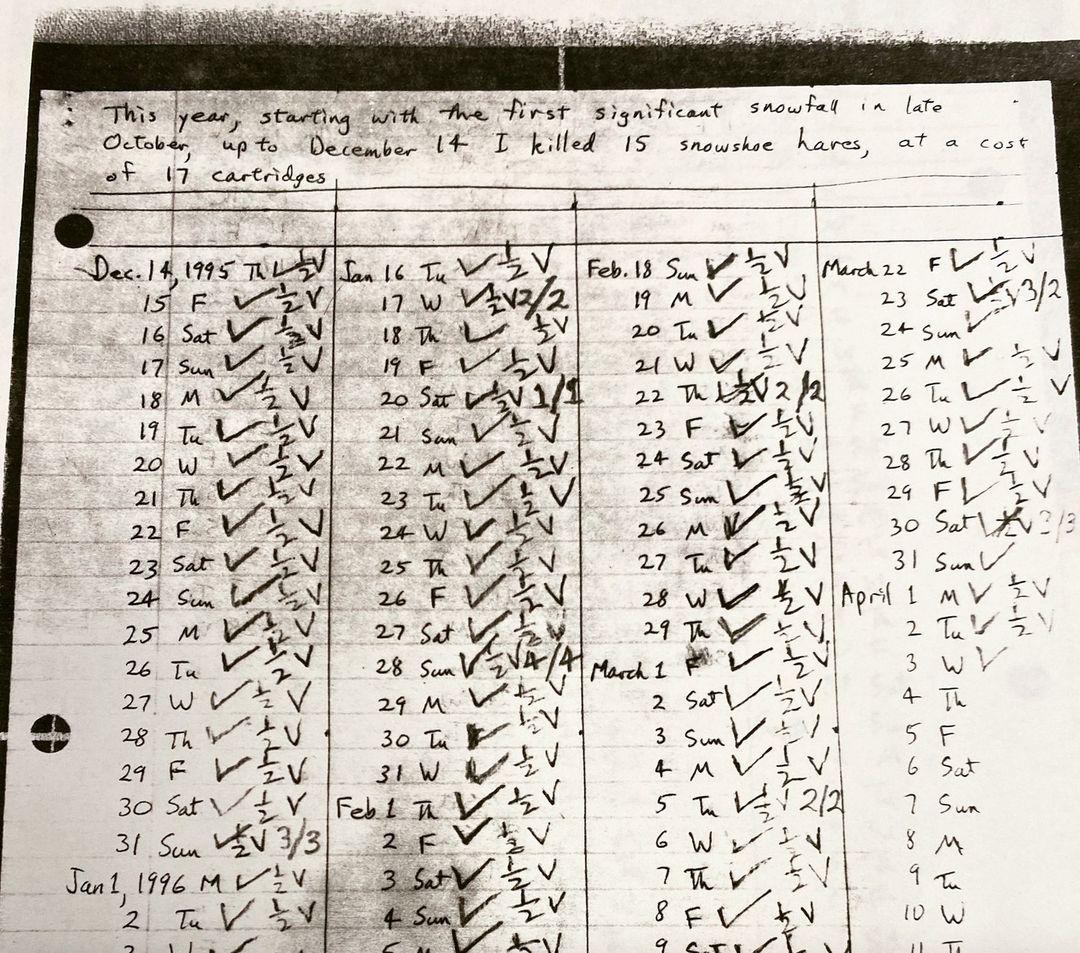 This year, starting with the first significant snowfall in late
October, up to December 14 I killed 15 snowshoe hares, at a cost
of 17 cartridges
Dec. 14, 1995 Th ✓ ½ V
15 F ✓ ½ V
16 Sat ✓ ½ V
17 Sun ✓ ½ V
18 M ✓ ½ V
19 Tu ✓ ½ V
20 W ✓ ½ V
21 Th ✓ ½ V
22 F ✓ ½ V
23 Sat ✓ ½ V
24 Sun ✓ ½ V
25 M ✓ ½ V
26 Tu ✓ ½ V
27 W ✓ ½ V
28 Th ✓ ½ V
29 F ✓ ½ V
30 Sat ✓ ½ V
31 Sun ✓ ½ V 3/3
Jan 1, 1996 M ✓ ½ V
2 Tu ✓ ½ V
Jan 16 Tu ✓ ½ V
17 W ✓ ½ V 2/2
18 Th ✓ ½ V
19 F ✓ ½ V
20 Sat ✓ ½ V 1/1
21 Sun ✓ ½ V
22 M ✓ ½ V
23 Tu ✓ ½ V
24 W ✓ ½ V
25 Th ✓ ½ V
26 F ✓ ½ V
27 Sat ✓ ½ V
28 Sun ✓ ½ V 4/4
29 M ✓ ½ V
30 Tu ✓ ½ V
31 W ✓ ½ V
Feb 1 Th ✓ ½ V
2 F ✓ ½ V
3 Sat ✓ ½ V
4 Sun ✓ ½ V
Feb. 18 Sun ✓ ½ V
19 M ✓ ½ V
20 Tu ✓ ½ V
21 W ✓ ½ V
22 Th ✓ ½ V 2/2
23 F ✓ ½ V
24 Sat ✓ ½ V
25 Sun ✓ ½ V
26 M ✓ ½ V
27 Tu ✓ ½ V
28 W ✓ ½ V
29 Th ✓ ½ V
March 1 F ✓ ½ V
2 Sat ✓ ½ V
3 Sun ✓ ½ V
4 M ✓ ½ V
5 Tu ✓ ½ V 2/2
6 W ✓ ½ V
7 Th ✓ ½ V
8 F ✓ ½ V
9 Sat ✓ ½ V
March 22 F ✓ ½ V
23 Sat ✓ ½ V 3/2
24 Sun ✓
25 M ✓ ½ V
26 Tu ✓ ½ V
27 W ✓ ½ V
28 Th ✓ ½ V
29 F ✓ ½ V
30 Sat ✓ ½ V 3/3
31 Sun ✓
April 1 M ✓ ½ V
2 Tu ✓ ½ V
3 W ✓
4 Th
5 F
6 Sat
7 Sun
8 M
9 Tu
10 W
11 Th